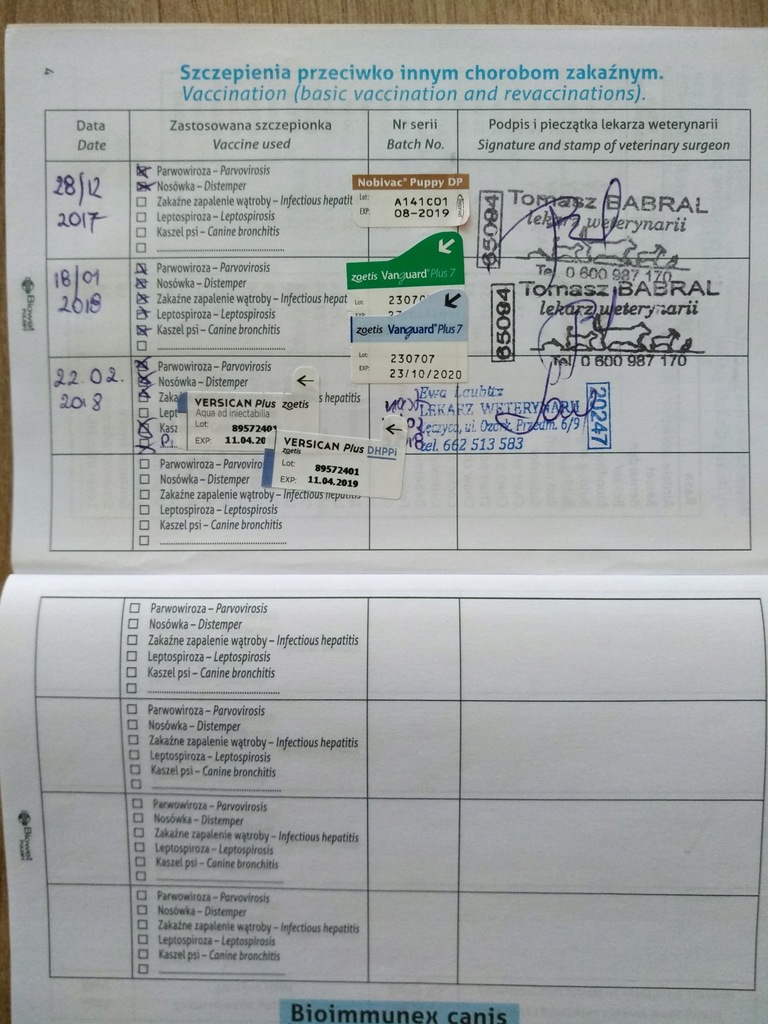 4
Szczepienia przeciwko innym chorobom zakaźnym.
Vaccination (basic vaccination and revaccinations).
Data
Date
Zastosowana szczepionka
Vaccine used
Nr serii
Batch No.
Podpis i pieczątka lekarza weterynarii
Signature and stamp of veterinary surgeon
28/12
2017
Parwowiroza – Parvovirosis
Nosówka – Distemper
Zakaźne zapalenie wątroby – Infectious hepatit
Leptospiroza – Leptospirosis
Kaszel psi – Canine bronchitis
Nobivac® Puppy DP
Lot: A141C01
EXP: 08-2019
65084
Tomasz BABRAL
lekarz weterynarii
Tel. 0 600 987 170
18/01
2018
Parwowiroza – Parvovirosis
Nosówka – Distemper
Zakaźne zapalenie wątroby – Infectious hepat
Leptospiroza – Leptospirosis
Kaszel psi – Canine bronchitis
zoetis Vanguard® Plus 7
Lot: 2307
EXP:
zoetis Vanguard® Plus 7
Lot: 230707
EXP: 23/10/2020
65084
Tomasz BABRAL
lekarz weterynarii
Tel. 0 600 987 170
22.02.
2018
Parwowiroza – Parvovirosis
Nosówka – Distemper
Zaka s hepatitis
Lept
Kasz
P.
VERSICAN Plus zoetis
Aqua ad iniectabilia
Lot: 89572401
EXP: 11.04.20
VERSICAN Plus DHPPi
zoetis
Lot: 89572401
EXP: 11.04.2019
Ewa
LEKARZ WETERYNARII
Łęczyca, ul. Ozork. Przedm. 6/9
tel. 662 513 583
20247
Parwowiroza – Parvoviro
Nosówka – Distemper
Zakaźne zapalenie wątroby – Infectious hepatitis
Leptospiroza – Leptospirosis
Kaszel psi – Canine bronchitis
Biowet
Parwowiroza – Parvovirosis
Nosówka – Distemper
Zakaźne zapalenie wątroby – Infectious hepatitis
Leptospiroza – Leptospirosis
Kaszel psi – Canine bronchitis
Parwowiroza – Parvovirosis
Nosówka – Distemper
Zakaźne zapalenie wątroby – Infectious hepatitis
Leptospiroza – Leptospirosis
Kaszel psi – Canine bronchitis
Parwowiroza – Parvovirosis
Nosówka – Distemper
Zakaźne zapalenie wątroby – Infectious hepatitis
Leptospiroza – Leptospirosis
Kaszel psi – Canine bronchitis
Parwowiroza – Parvovirosis
Nosówka – Distemper
Zakaźne zapalenie wątroby – Infectious hepatitis
Leptospiroza – Leptospirosis
Kaszel psi – Canine bronchitis
Biowet
Bioimmunex canis